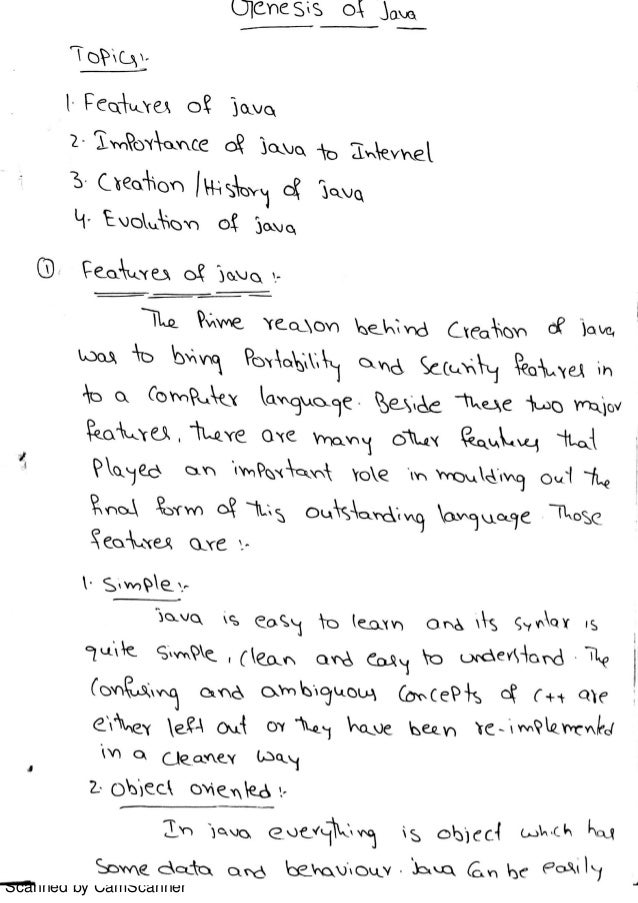 Genesis of Java
Topics:-
1. Features of java
2. Importance of java to Internel
3. Creation / History of java
4. Evolution of java
① Features of java :-
The Prime reason behind Creation of java
was to bring Portability and Security features in
to a Computer language. Beside these two major
features, there are many other feautures that
Played an important role in moulding out the
final form of this outstanding language. Those
features are :-
1. Simple :-
java is easy to learn and its syntax is
quite simple, clean and easy to understand. The
Confusing and ambiguous Concepts of C++ are
either left out or they have been re-implemented
in a cleaner way
2. Object oriented :-
In java everything is object which has
some data and behaviour. Java Can be easily
Scanned by CamScanner